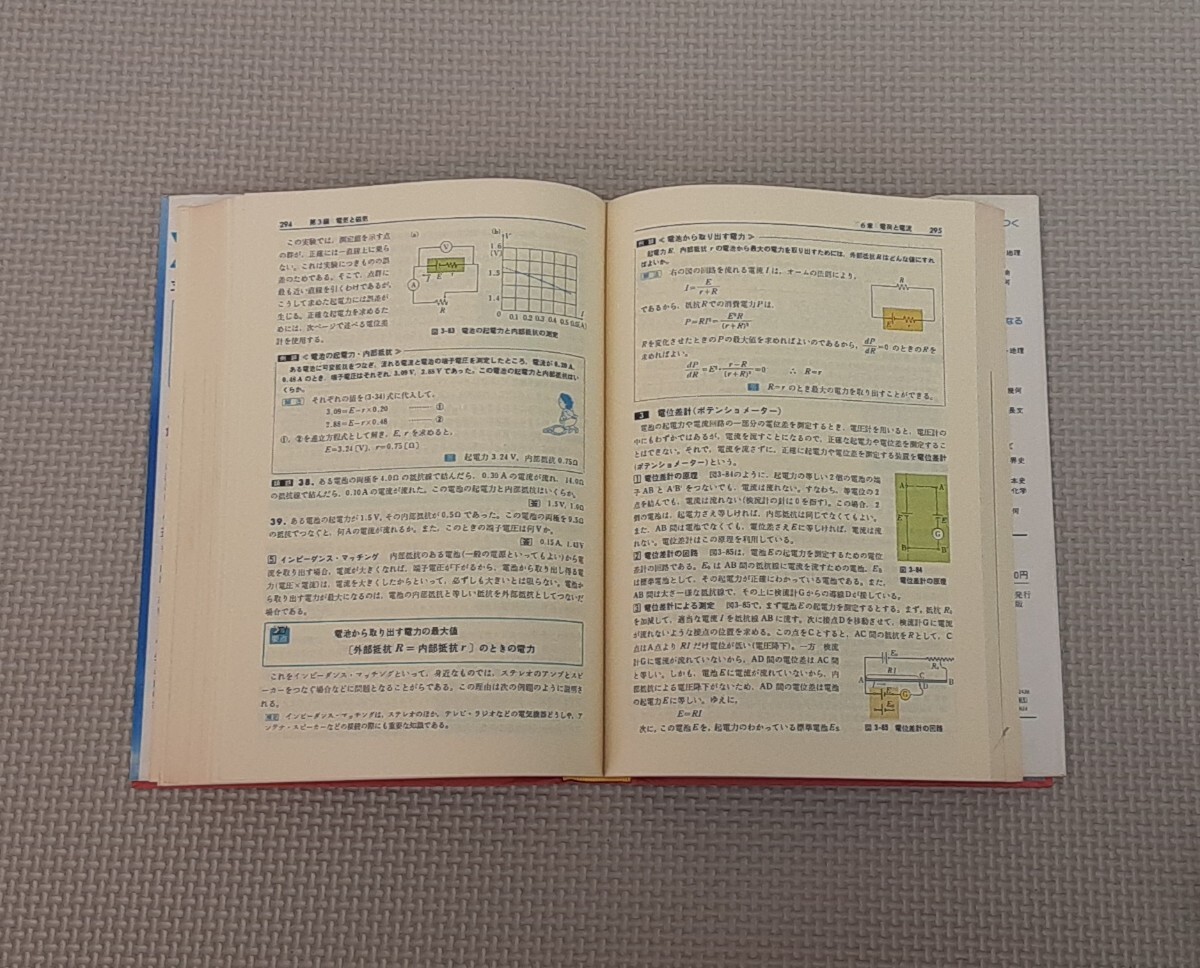 294 第3編 電気と磁気
この実験では，測定値を示す点
の群が，正確には一直線上に乗ら
ない。これは実験につきものの誤
差のためである。そこで，点群に
最も近い直線を引くわけであるが，
こうして求めた起電力には誤差が
生じる。正確な起電力を求めるた
めには，次ページで述べる電位差
計を使用する。
(a)
V
E
A
R
(b)
V
1.6
(V)
1.5
1.4
0 0.1 0.2 0.3 0.4 0.5 (A)
図3-83 電池の起電力と内部抵抗の測定
例題 ＜電池の起電力・内部抵抗＞
ある電池に可変抵抗をつなぎ，流れる電流と電池の端子電圧を測定したところ，電流が0.20A，
0.48Aのとき，端子電圧はそれぞれ，3.09V，2.88Vであった。この電池の起電力と内部抵抗はい
くらか。
解き方 それぞれの値を(3-34)式に代入して，
3.09=E−r×0.20 ―― ①
2.88=E−r×0.48 ―― ②
①，②を連立方程式として解き，E, rを求めると，
E=3.24〔V〕，r=0.75〔Ω〕
答 起電力 3.24V，内部抵抗 0.75Ω
類題 38. ある電池の両極を4.0Ωの抵抗線で結んだら，0.30Aの電流が流れ，14.0Ω
の抵抗線で結んだら，0.10Aの電流が流れた。この電池の起電力と内部抵抗はいくらか。
〔答〕 1.5V, 1.0Ω
39. ある電池の起電力が1.5V，その内部抵抗が0.5Ωであった。この電池の両極を9.5Ω
の抵抗でつなぐと，何Aの電流が流れるか。また，このときの端子電圧は何Vか。
〔答〕 0.15A, 1.43V
5 インピーダンス・マッチング 内部抵抗のある電池(一般の電源といってもよい)から電
流を取り出す場合，電流が大きくなれば，端子電圧が下がるから，電池から取り出し得る電
力(電圧×電流)は，電流を大きくしたからといって，必ずしも大きいとは限らない。電池か
ら取り出す電力が最大になるのは，電池の内部抵抗と等しい抵抗を外部抵抗としてつないだ
場合である。
要点
電池から取り出す電力の最大値
〔外部抵抗R＝内部抵抗r〕のときの電力
これをインピーダンス・マッチングといって，身近なものでは，ステレオのアンプとスピ
ーカーをつなぐ場合などに問題となることがらである。この理由は次の例題のように説明さ
れる。
補足 インピーダンス・マッチングは，ステレオのほか，テレビ・ラジオなどの電気機器どうしや，ア
ンテナ・スピーカーなどの接続の際にも重要な知識である。
6章 電荷と電流 295
例題 ＜電池から取り出す電力＞
起電力E，内部抵抗rの電池から最大の電力を取り出すためには，外部抵抗Rはどんな値にすれ
ばよいか。
解き方 右の図の回路を流れる電流Iは，オームの法則により，
I=E/(r+R)
であるから，抵抗Rでの消費電力Pは，
P=RI²=E²R/(r+R)²
Rを変化させたときのPの最大値を求めればよいのであるから，dP/dR=0 のときのRを
求めればよい。
dP/dR=E²・(r−R)/(r+R)³=0 ∴ R=r
答 R=rのとき最大の電力を取り出すことができる。
R
E r
3 電位差計(ポテンショメーター)
電池の起電力や電流回路の一部分の電位差を測定するとき，電圧計を用いると，電圧計の
中にもわずかではあるが，電流を流すことになるので，正確な起電力や電位差を測定するこ
とはできない。それで，電流を流さずに，正確に起電力や電位差を測定する装置を電位差計
(ポテンショメーター)という。
1 電位差計の原理 図3-84のように，起電力の等しい2個の電池の端
子ABとA′B′をつないでも，電流は流れない。すなわち，等電位の2
点を結んでも，電流は流れない(検流計の針は0を指す)。この場合，2
個の電池は，起電力さえ等しければ，内部抵抗は同じでなくてもよい。
また，AB間は電池でなくても，電位差さえEに等しければ，電流は流
れない。電位差計はこの原理を利用している。
A A′
E E
G
B B′
図3-84
電位差計の原理
2 電位差計の回路 図3-85は，電池Eの起電力を測定するための電位
差計の回路である。E₀はAB間の抵抗線に電流を流すための電池，Es
は標準電池として，その起電力が正確にわかっている電池である。また，
AB間は太さ一様な抵抗線で，その上に検流計Gからの導線Dが接している。
3 電位差計による測定 図3-85で，まず電池Eの起電力を測定するとする。まず，抵抗R₁
を加減して，適当な電流Iを抵抗線ABに流す。次に接点Dを移動させて，検流計Gに電流
が流れないような接点の位置を求める。この点をCとすると，AC間の抵抗をRとして，C
点はA点よりRIだけ電位が低い(電圧降下)。一方，検流
計Gに電流が流れていないから，AD間の電位差はAC間
と等しい。しかも，電池Eに電流が流れていないから，内
部抵抗による電圧降下がないため，AD間の電位差は電池
の起電力Eに等しい。ゆえに，
E=RI
次に，この電池Eを，起電力のわかっている標準電池Es
E₀
RI R₁
A C B
I D
E G
Es
図3-85 電位差計の回路